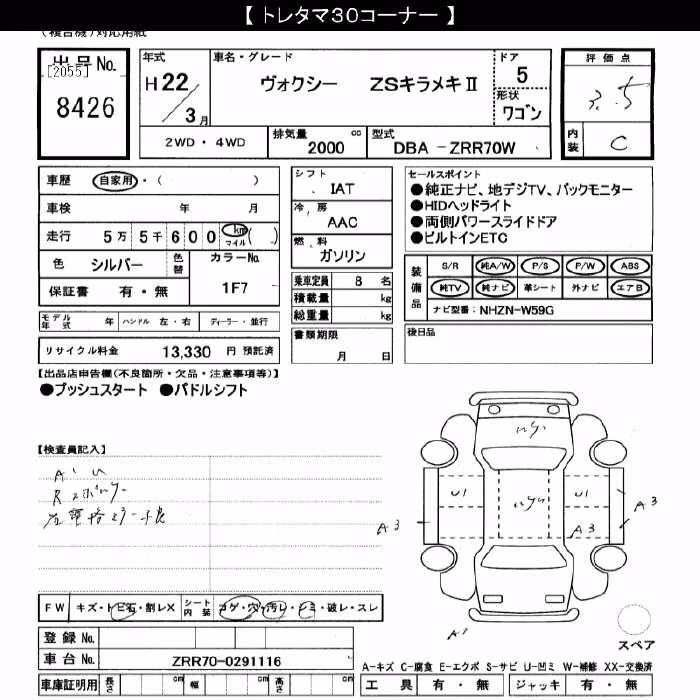 【 トレタマ30コーナー 】
(複合機)対応用紙
出品No.
[2055]
8426
年式
H22/3月
車名・グレード
ヴォクシー ZSキラメキⅡ
ドア
5
形状
ワゴン
評価点
3.5
内装
C
2WD・4WD
排気量 cc
2000
型式
DBA-ZRR70W
車歴 自家用・( )
車検 年 月
走行 5万5千600km マイル( )
色 シルバー 色替
カラーNo.
1F7
保証書 有・無
シフト
IAT
冷房
AAC
燃料
ガソリン
乗車定員 8名
積載量 kg
総重量 kg
セールスポイント
●純正ナビ、地デジTV、バックモニター
●HIDヘッドライト
●両側パワースライドドア
●ビルトインETC
装備品
S/R 純A/W P/S P/W ABS
純TV 純ナビ 革シート 外ナビ エアB
ナビ型番: NHZN-W59G
モデル年式 年 ハンドル 左・右 ディーラー・並行
リサイクル料金 13,330 円 預託済
書類期限
月 日
後日品
【出品店申告欄(不良箇所・欠品・注意事項等)】
●プッシュスタート ●パドルシフト
【検査員記入】
Rスポイラー
A3
U1
U1
A3
A3
FW キズ・トビ石・割レX
シート内装 コゲ・穴・汚レ・シミ・破レ・スレ
登録No.
車台No. ZRR70-0291116
車庫証明用 長さ cm 幅 cm 高さ cm
スペア
A-キズ C-腐食 E-エクボ S-サビ U-凹ミ W-補修 XX-交換済
工具 有・無 ジャッキ 有・無